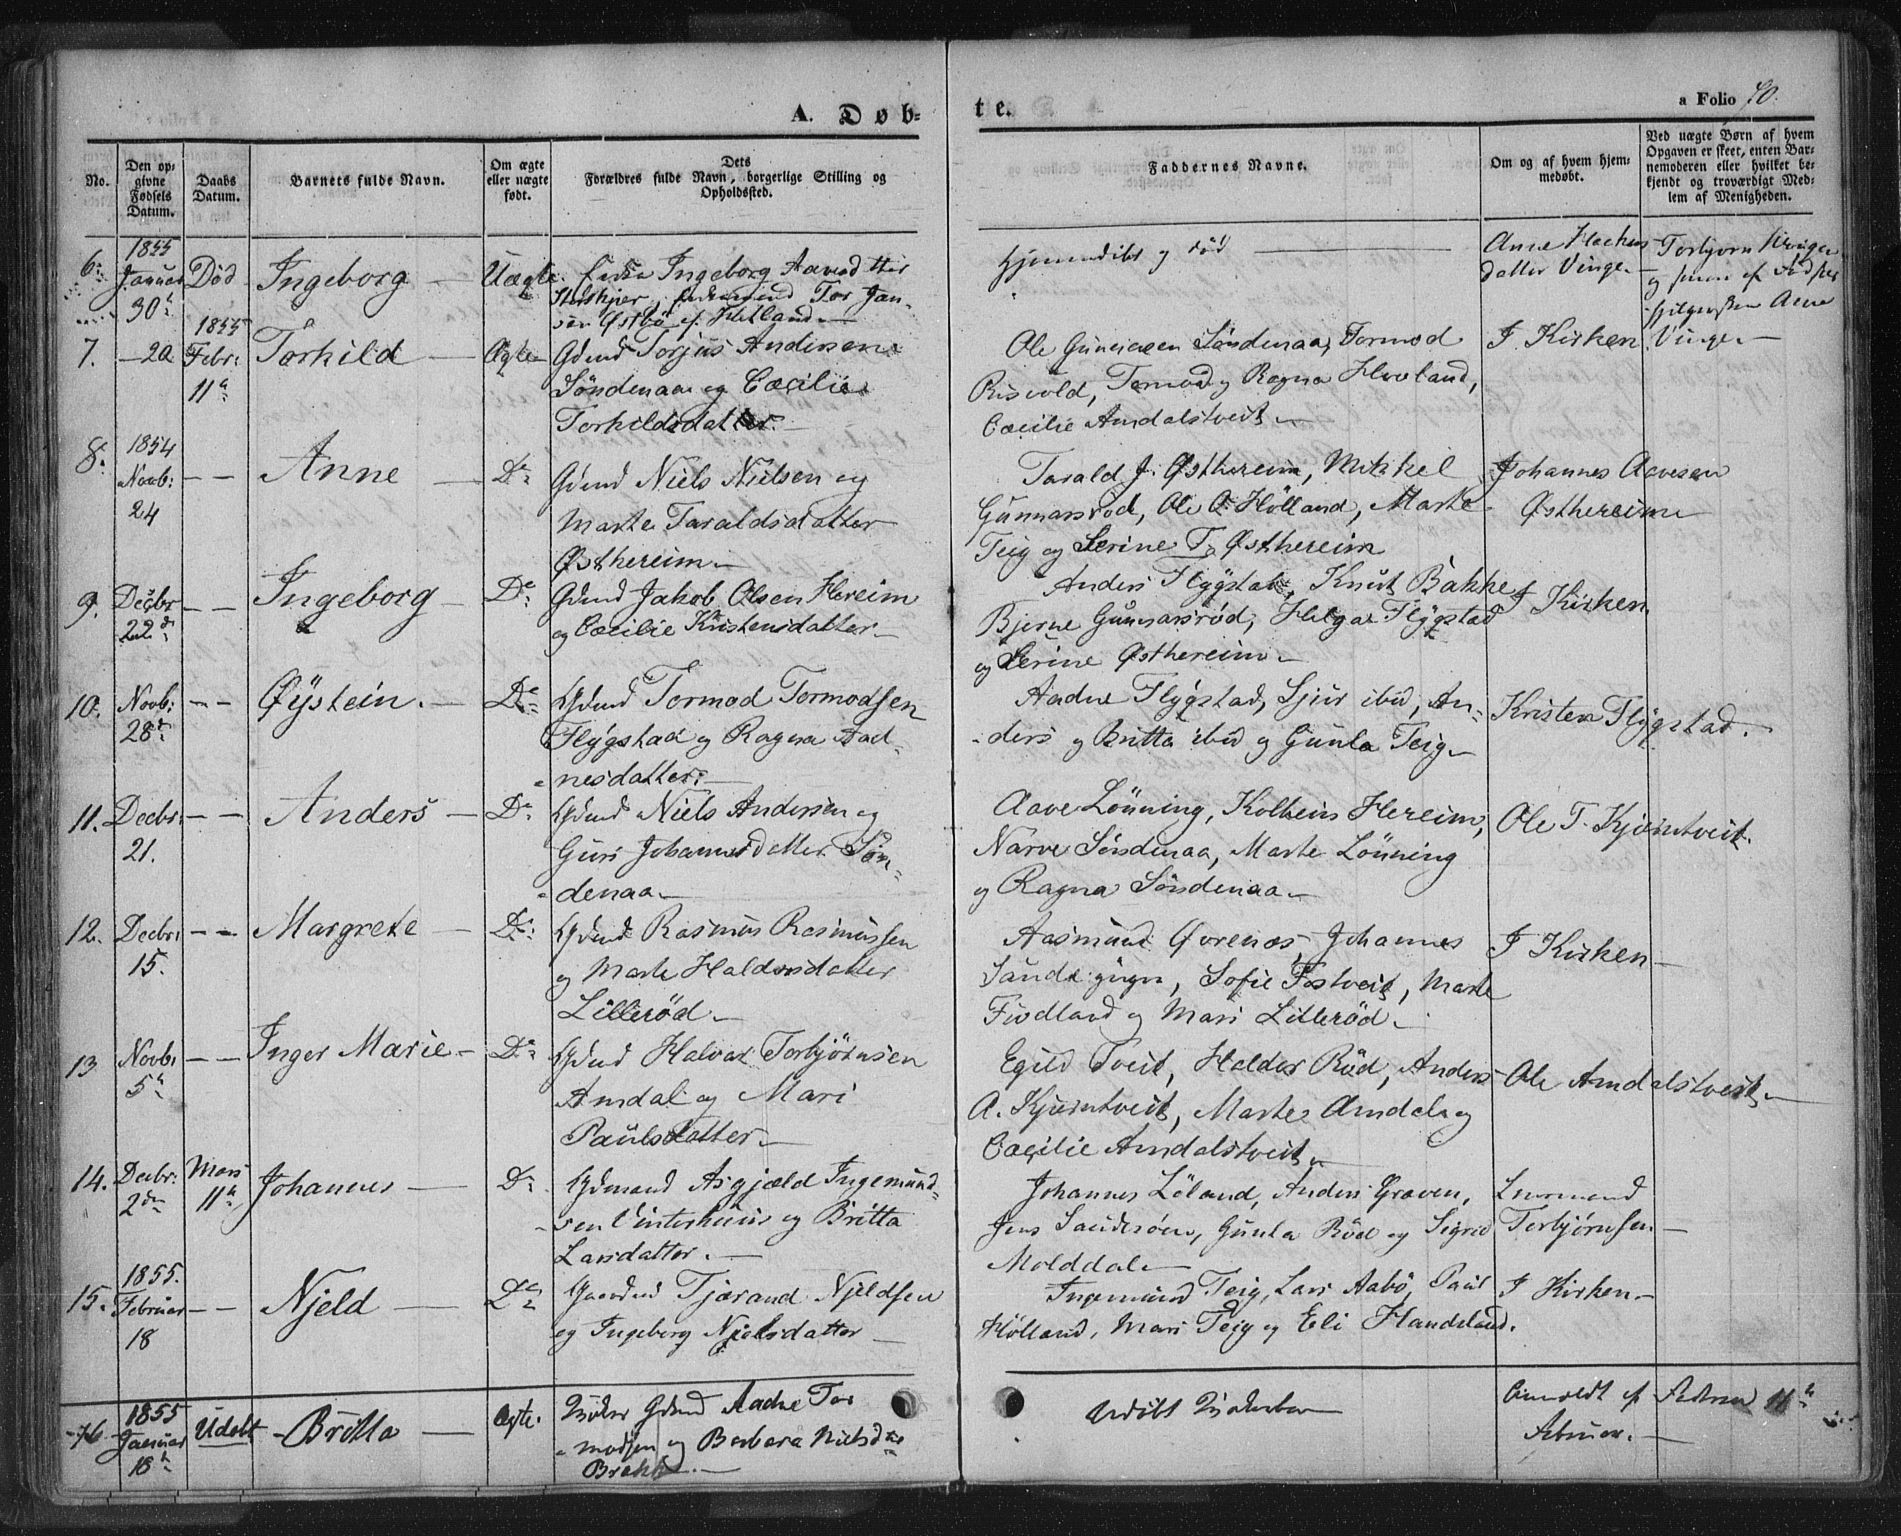 A. Døb-
te.
a Folio 70.
No.
Den op-
givne
Fødsels
Datum.
Daabs
Datum.
Barnets fulde Navn.
Om ægte
eller uægte
født.
Dets
Forældres fulde Navn, borgerlige Stilling og
Opholdssted.
Faddernes Navne.
Om og af hvem hjem-
medøbt.
Ved uægte Børn af hvem
Opgaven er skeet, enten Bar-
nemoderen eller hvilket be-
kjendt og troværdigt Med-
lem af Menigheden.
6.
1855
Januar
30
Død
Ingeborg
Uægte.
Ingeborg
Tor Jan-
sen Østbø af Hetland
Hjemmedöbt og død
Anne
datter Vinge
Torbjørn
og
Anne
Vinge
7.
20
1855
Febr:
11
Torkild
Ægte
Gdmd Torjus Andersen
Söndenaa og Cæcilie
Torkildsdatter.
Ole Söndenaa, Tormod
Risvold, Tormod og Ragna Hovland,
Cæcilie Amdalstveit
I Kirken
8.
1854
Novb:
24
- -
Anne
Do
Gdmd Niels Nielsen og
Marte Taraldsdatter
Østhereim
Tarald J. Østhereim, Mikkel
Gunnarsrød, Ole O. Hölland, Marte
Teig og Serine T. Østhereim
Johannes Aavesen
Østhereim
9.
Decbr
22
- -
Ingeborg
Do
Gdmd Jakob Olsen Hereim
og Cæcilie Kristensdatter
Anders Flÿgstad, Knut Bakke
Bjerne Gunnarsrød, Helgae Flÿgstad
og Serine Østhereim
I Kirken
10.
Novb:
28
- -
Øÿstein.
Do
Gdmd Tormod Tormodsen
Flÿgstad og Ragna Aad-
nesdatter
Aadne Flÿgstad, Sjur ibid, An-
ders og Britta ibid og Gunla Teig
Kristen Flÿgstad.
11.
Decbr:
21.
- -
Anders
Do
Gdmd Niels Andersen og
Guri Johannesdatter Sön-
denaa
Aave Lönning, Kolbeins Hereim,
Narve Söndenaa, Marte Lönning
og Ragna Söndenaa
Ole T. Kjerntveit.
12.
Decbr:
15.
- -
Margrete
Do
Gdmd Rasmus Rasmussen
og Marte Haldorsdatter
Lilleröd
Aasmund Øvrenæs, Johannes
Sofie Fostveit, Marte
Fivelland og Mari Lilleröd
I Kirken
13
Novb:
5
- -
Inger Marie
Do
Gdmd Halvar Torbjörnsen
Amdal og Mari
Paulsdatter
Egild Tveit, Haldor Röd, Anders
A. Kjerntveit, Marte Amdal og
Cæcilie Amdalstveit
Ole Amdalstveit
14.
Decbr:
2
Mars
11
Johannes
Do
Gdmand Asgjæld Ingemund-
sen Vinterhuus og Britta
Larsdatter.
Johannes Løland, Anders Graven,
Jens Gunla Röd og Sigrid
Molddal
Torbjörnsen
15.
1855.
Februar
18
- -
Njeld
Do
Tjærand Njeldsen
og Ingeborg Njelsdatter
Ingemund Teig, Lars Aabö, Paul
Hölland, Mari Teig og Eli Handeland.
I Kirken
16
1855
Januar
18
Udøbt
Britta
Ægte.
Gdmd Aadne Tor
modsen og Barbara Nielsdtr
Brekke
Februar.